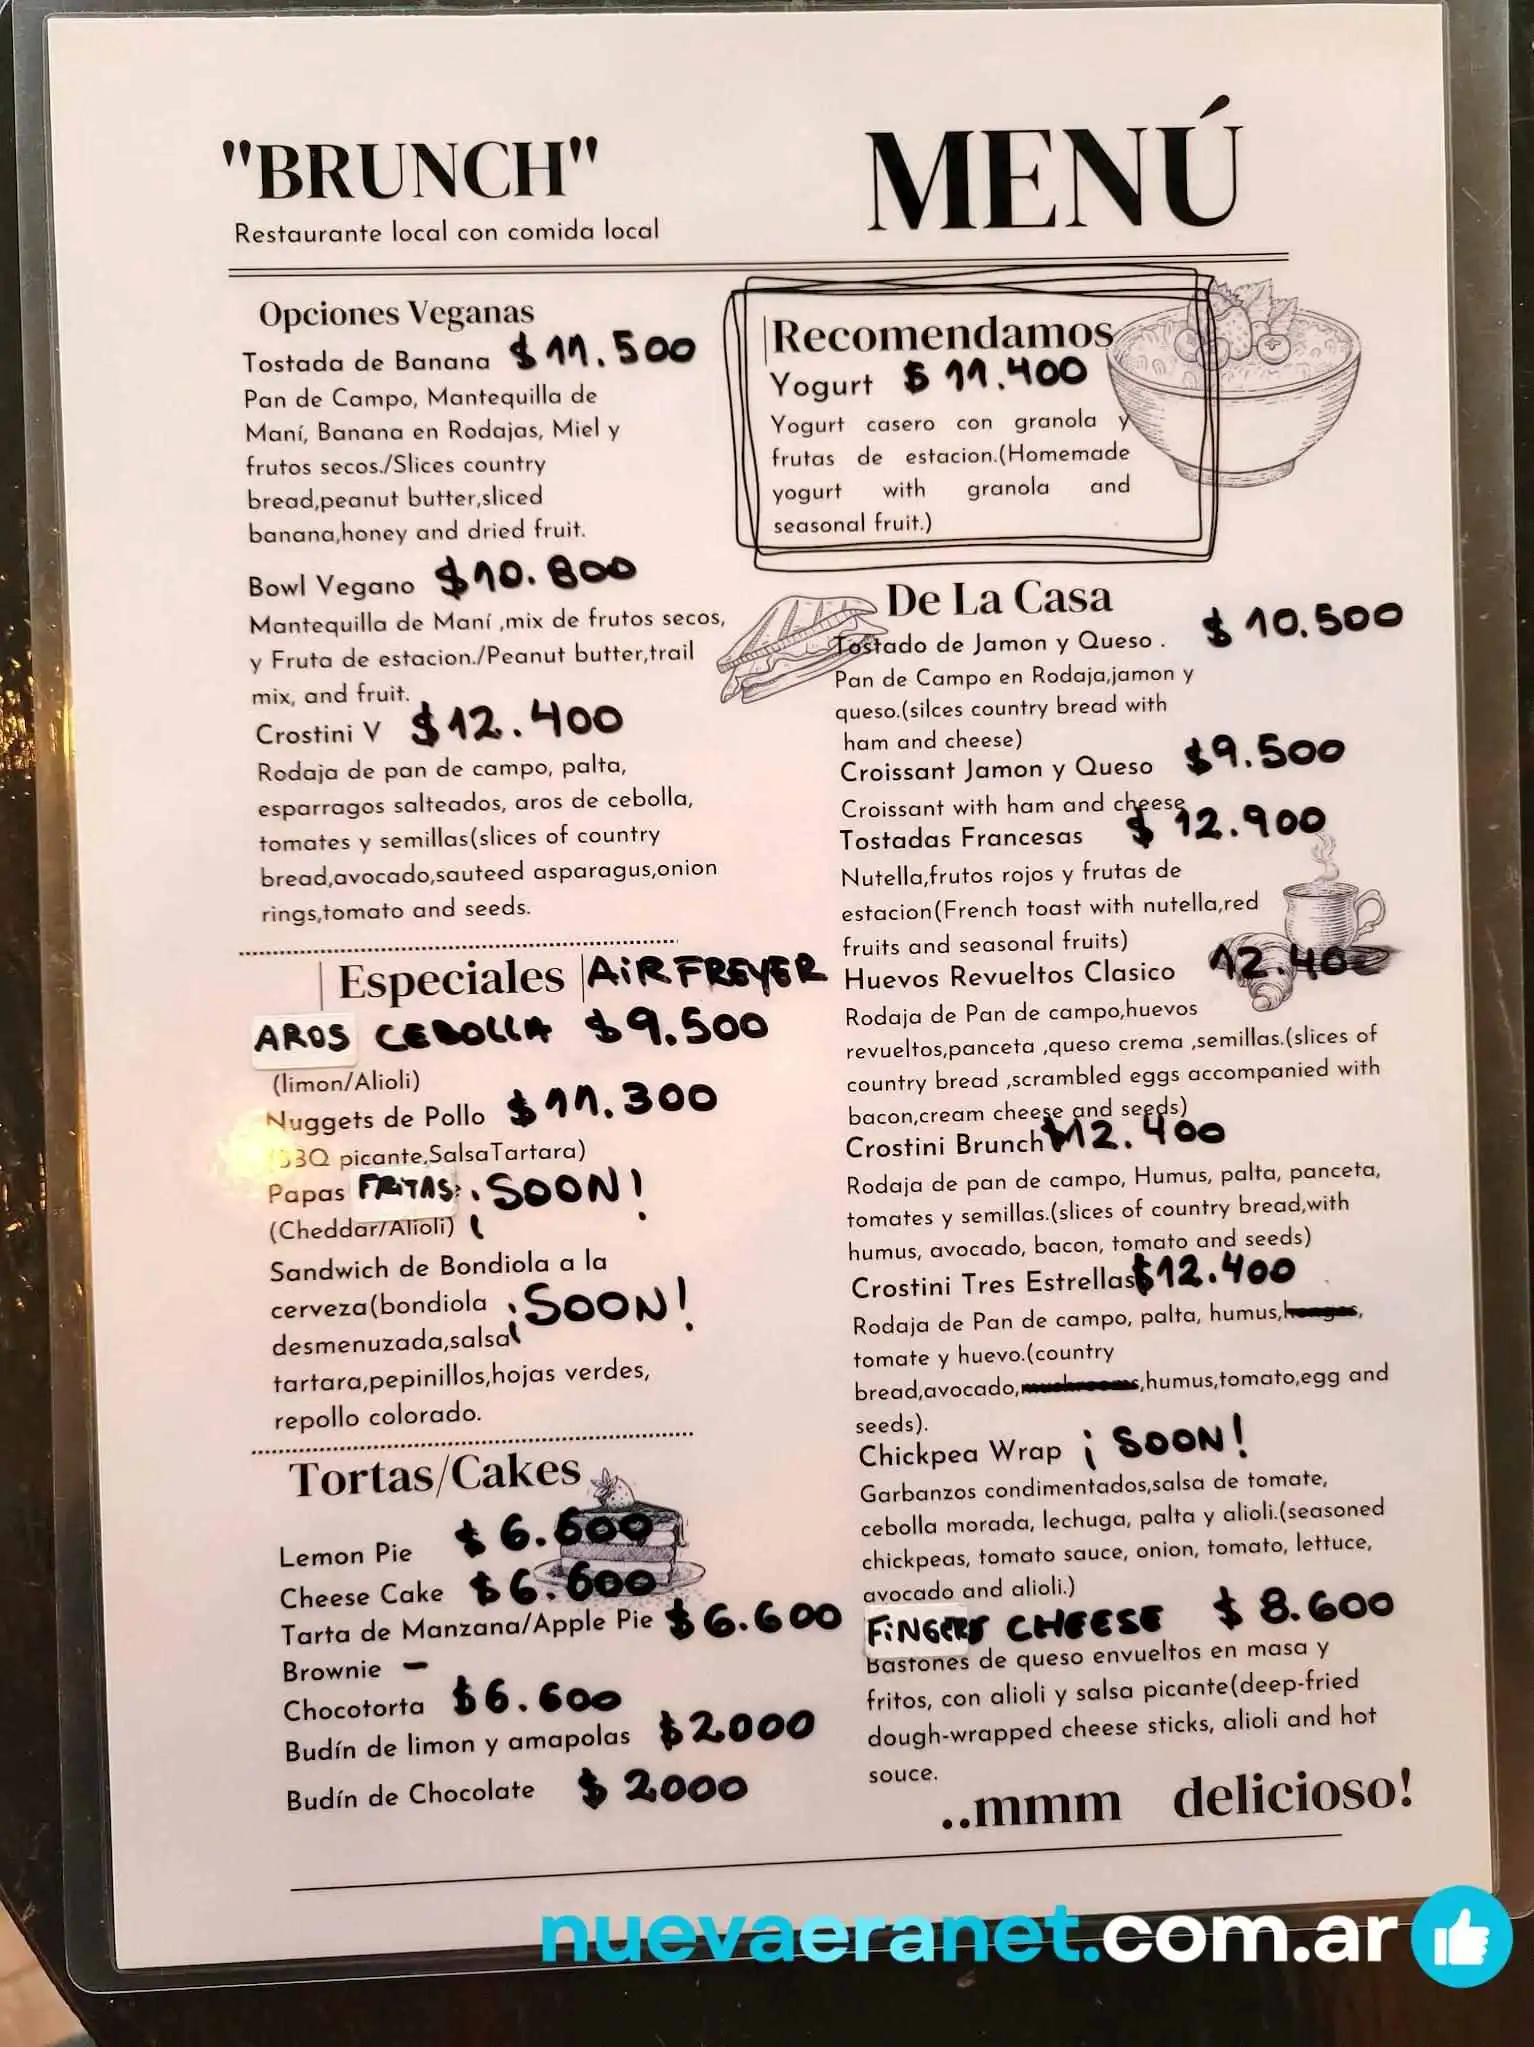 "BRUNCH"
Restaurante local con comida local
MENÚ
Opciones Veganas
Tostada de Banana $11.500
Pan de Campo, Mantequilla de
Maní, Banana en Rodajas, Miel y
frutos secos./Slices country
bread,peanut butter,sliced
banana,honey and dried fruit.
Bowl Vegano $10.800
Mantequilla de Maní ,mix de frutos secos,
y Fruta de estacion./Peanut butter,trail
mix, and fruit.
Crostini V $12.400
Rodaja de pan de campo, palta,
esparragos salteados, aros de cebolla,
tomates y semillas(slices of country
bread,avocado,sauteed asparagus,onion
rings,tomato and seeds.
Especiales AiRFREYER
AROS CEBOLLA $9.500
(limon/Alioli)
Nuggets de Pollo $11.300
BBQ picante,SalsaTartara)
Papas FRITAS: ¡SOON!
(Cheddar/Alioli)
Sandwich de Bondiola a la
cerveza(bondiola ¡SOON!
desmenuzada,salsa
tartara,pepinillos,hojas verdes,
repollo colorado.
Tortas/Cakes
Lemon Pie $6.600
Cheese Cake $6.600
Tarta de Manzana/Apple Pie $6.600
Brownie –
Chocotorta $6.600
Budín de limon y amapolas $2000
Budín de Chocolate $2000
Recomendamos
Yogurt $11.400
Yogurt casero con granola y
frutas de estacion.(Homemade
yogurt with granola and
seasonal fruit.)
De La Casa
Tostado de Jamon y Queso . $10.500
Pan de Campo en Rodaja,jamon y
queso.(silces country bread with
ham and cheese)
Croissant Jamon y Queso $9.500
Croissant with ham and cheese
Tostadas Francesas $12.900
Nutella,frutos rojos y frutas de
estacion(French toast with nutella,red
fruits and seasonal fruits)
Huevos Revueltos Clasico 12.400
Rodaja de Pan de campo,huevos
revueltos,panceta ,queso crema ,semillas.(slices of
country bread ,scrambled eggs accompanied with
bacon,cream cheese and seeds)
Crostini Brunch $12.400
Rodaja de pan de campo, Humus, palta, panceta,
tomates y semillas.(slices of country bread,with
humus, avocado, bacon, tomato and seeds)
Crostini Tres Estrellas $12.400
Rodaja de Pan de campo, palta, humus,hongos,
tomate y huevo.(country
bread,avocado,mushrooms,humus,tomato,egg and
seeds).
Chickpea Wrap ¡SOON!
Garbanzos condimentados,salsa de tomate,
cebolla morada, lechuga, palta y alioli.(seasoned
chickpeas, tomato sauce, onion, tomato, lettuce,
avocado and alioli.)
FiNGERS CHEESE $8.600
Bastones de queso envueltos en masa y
fritos, con alioli y salsa picante(deep-fried
dough-wrapped cheese sticks, alioli and hot
souce.
..mmm delicioso!
nuevaeranet.com.ar